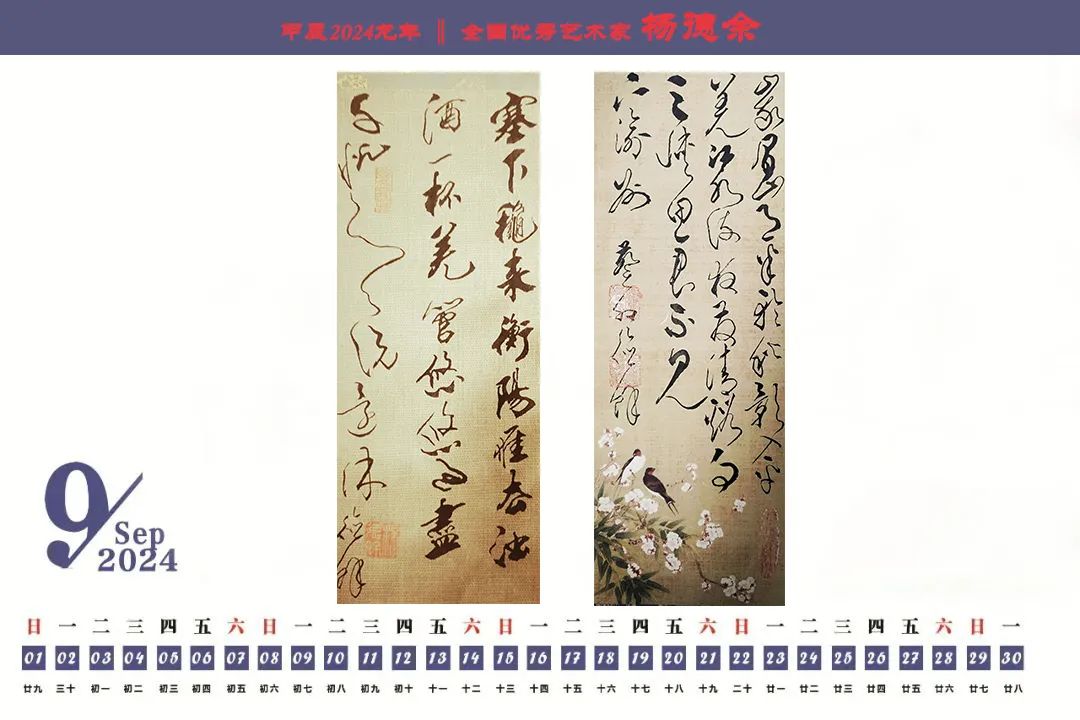 甲辰2024龙年 ‖ 全国优秀艺术家 杨德余
塞下龝来衡陽雁去浊
酒一杯羌管悠悠盡
峩眉山月半轮秋影入平
羌江水流夜发清溪向
三峡思君不见
下渝州
9/Sep
2024
日 一 二 三 四 五 六 日 一 二 三 四 五 六 日 一 二 三 四 五 六 日 一 二 三 四 五 六 日 一
01 02 03 04 05 06 07 08 09 10 11 12 13 14 15 16 17 18 19 20 21 22 23 24 25 26 27 28 29 30
廿九 三十 初一 初二 初三 初四 初五 初六 初七 初八 初九 初十 十一 十二 十三 十四 十五 十六 十七 十八 十九 二十 廿一 廿二 廿三 廿四 廿五 廿六 廿七 廿八